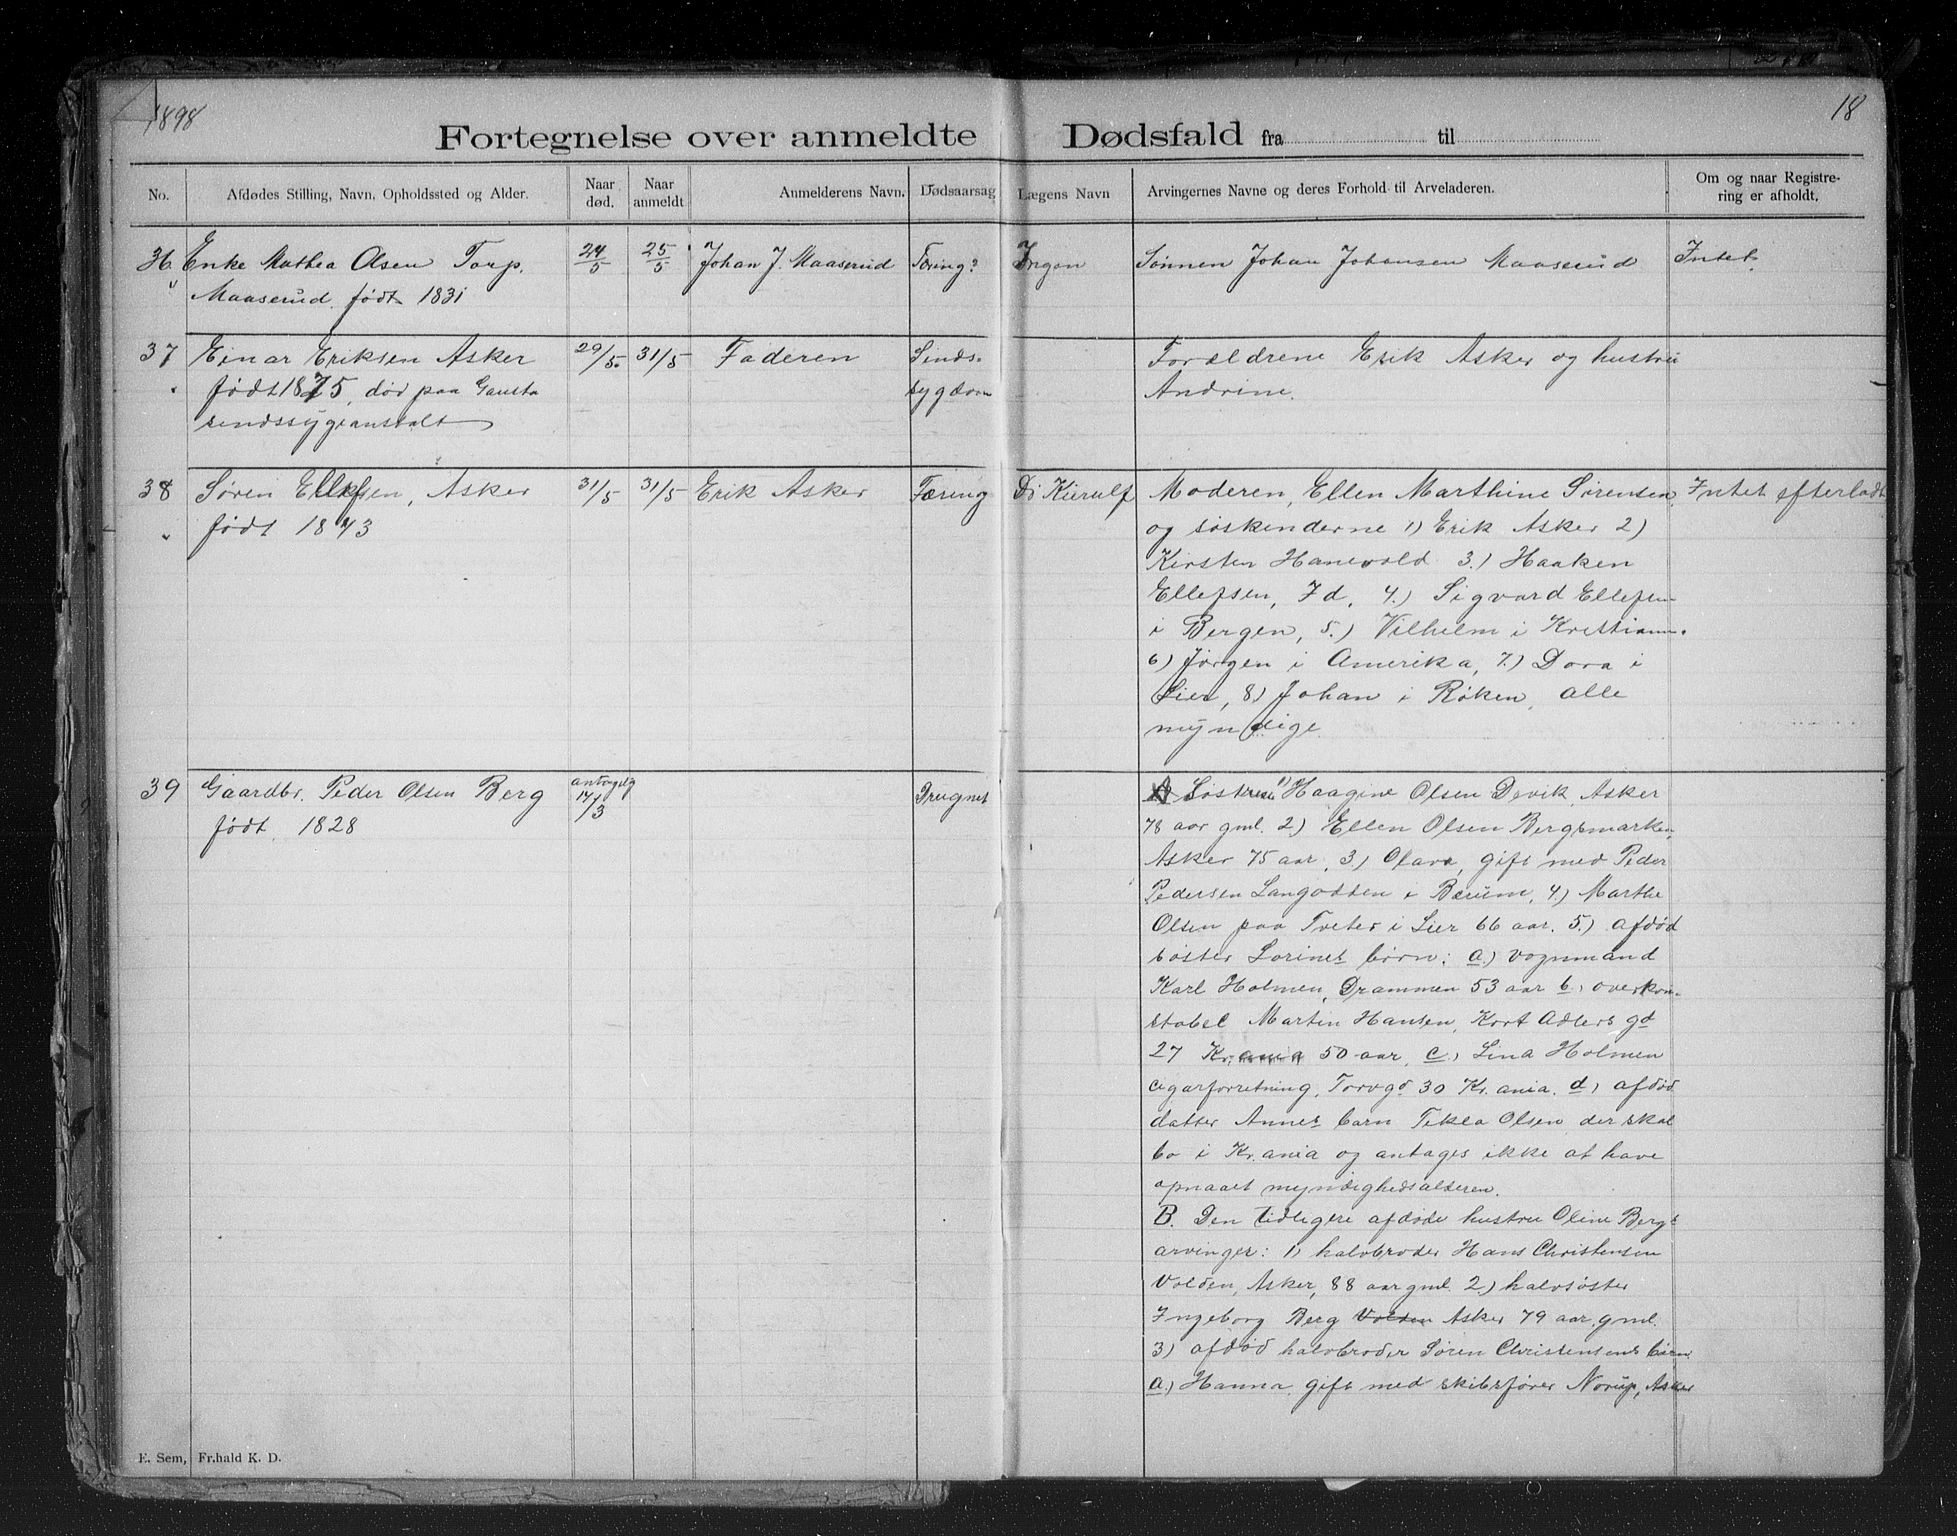 1898
18
Fortegnelse over anmeldte Dødsfald fra til
No.
Afdødes Stilling, Navn, Opholdssted og Alder.
Naar død.
Naar anmeldt
Anmelderens Navn.
Dødsaarsag
Lægens Navn
Arvingernes Navne og deres Forhold til Arveladeren.
Om og naar Registrering er afholdt.
36 Enke Mathea Olsen Torp, 24/5 25/5 Johan J. Maaserud Tæring? Ingen Sønnen Johan Johansen Maaserud Intet.
Maaserud, født 1831
37 Einar Eriksen Asker 29/5. 31/5 Faderen Sinds- Forældrene Erik Asker og hustru
født 1875, død paa Gausta sygdom Andrine.
sindssygeanstalt
38 Søren Ellefsen, Asker 31/5 31/5 Erik Asker Tæring Dr Kierulf Moderen, Ellen Marthine Sørensen Intet efterladt
født 1873 og søskenderne 1) Erik Asker 2)
Kirsten Hanevold 3.) Haaken
Ellefsen, Id, 4.) Sigvard Ellefsen
i Bergen, 5.) Vilhelm i Kristiania.
6) Jørgen i Amerika, 7.) Dora i
Lier, 8) Johan i Røken, alle
myndige
39 Gaardbr. Peder Olsen Berg antagelig Druknet A) Søstrene 1) Haagine Olsen Devik, Asker
født 1828 17/3 78 aar gml. 2.) Ellen Olsen Bergsmarken,
Asker 75 aar, 3.) Olava, gift med Peder
Pedersen Langodden i Bærum, 4.) Marthe
Olsen paa Tveter i Lier 66 aar. 5.) afdød
søster Lorines børn: a.) vognmand
Karl Holmen, Drammen 53 aar b, overkon-
stabel Martin Hansen, Kort Adlers gd
27 Kr.ania 50 aar, c.) Lina Holmen
cigarforretning, Torvgd 30 Kr.ania. d, afdød
datter Annes barn Tekla Olsen der skal
bo i Kr.ania og antages ikke at have
opnaaet myndighedsalderen.
B. Den tidligere afdøde hustru Oline Bergs
arvinger: 1) halvbroder Hans Christensen
Volden, Asker, 88 aar gml. 2.) halvsøster
Ingeborg Berg Volden Asker 79 aar gml.
3) afdød halvbroder Søren Christensens børn
a.) Hanna, gift med skibsfører Norup, Asker
E. Sem, Fr.hald K. D.